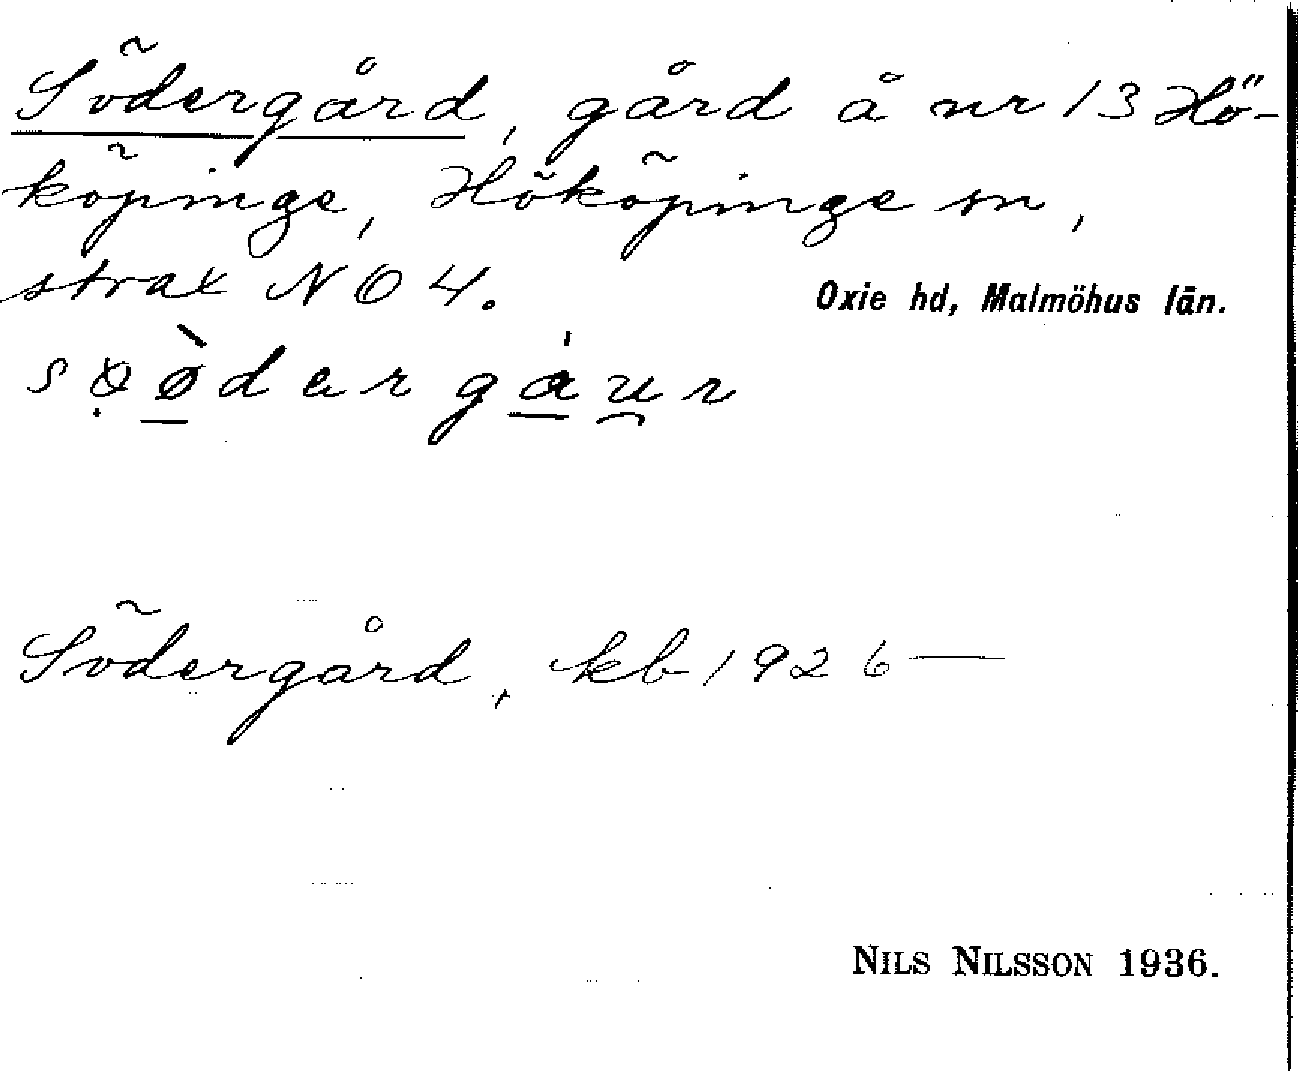 Södergård, gård å nr 13 Hö-
köpinge, Hököpinge sn,
strax NO 4.
Oxie hd, Malmöhus län.
sọø̠̀darga̠̍u̯r
Södergård, kb 1926—
NILS NILSSON 1936.